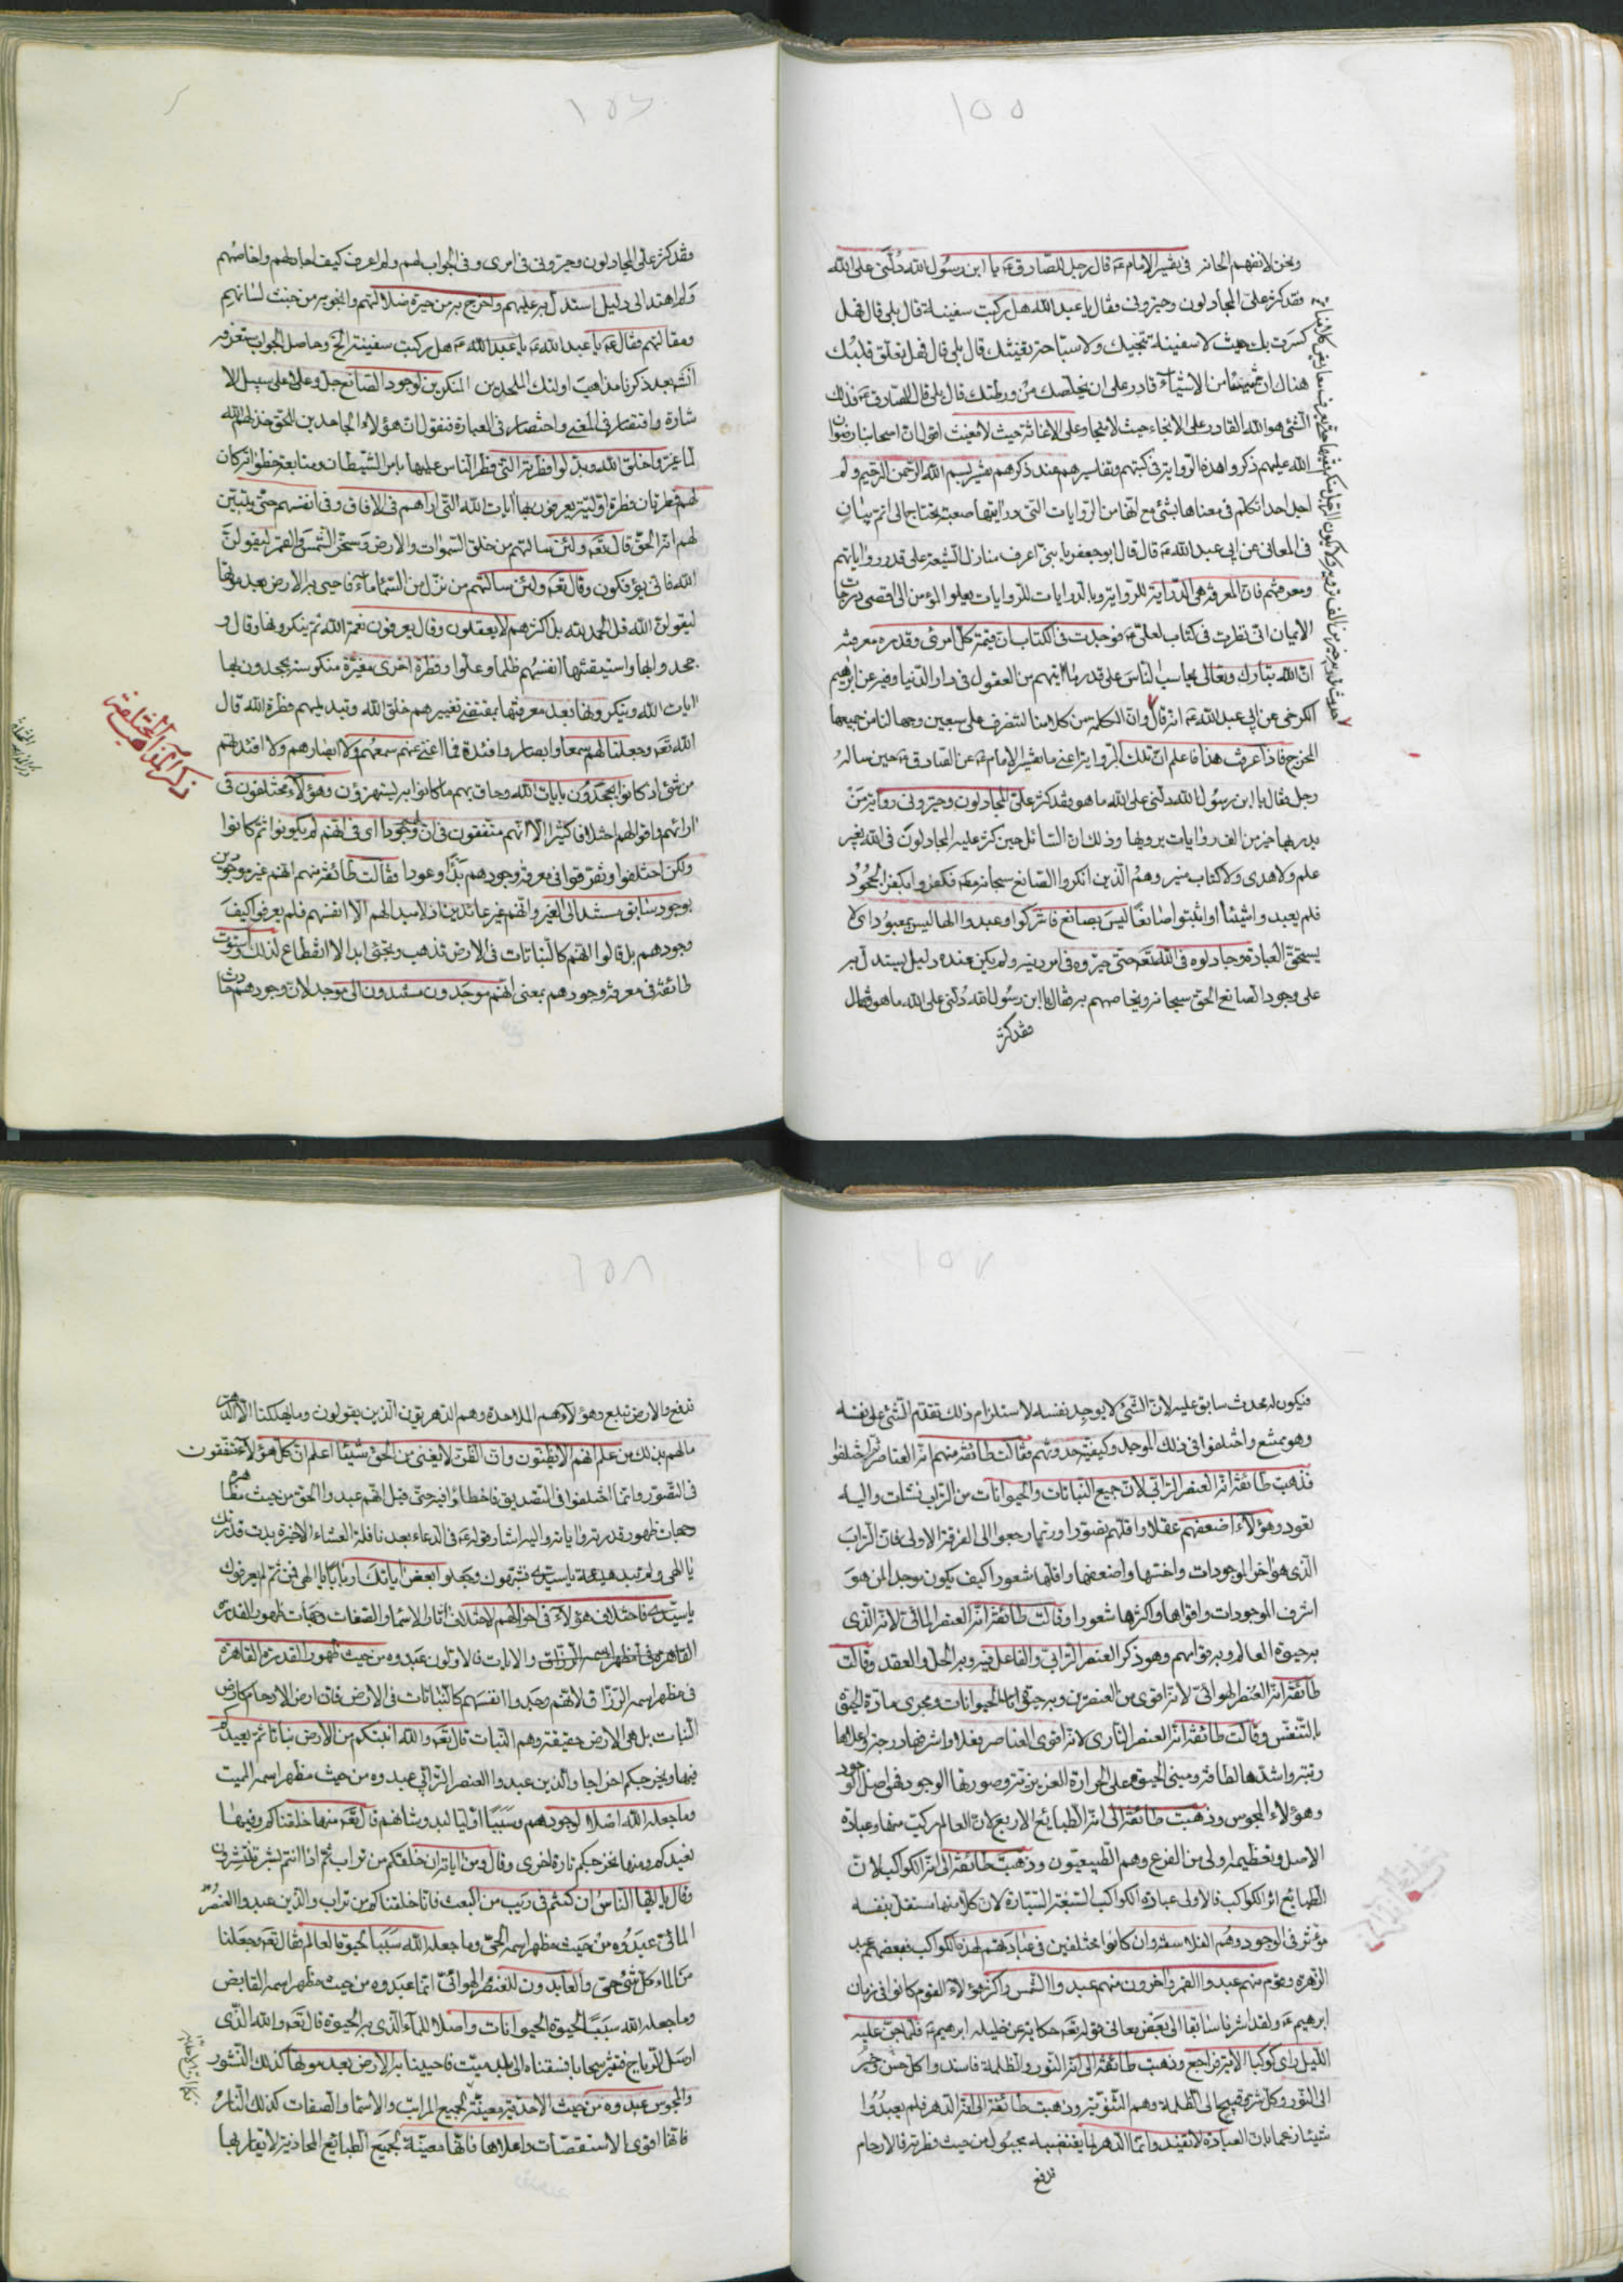 ١٥٥
ونحن لا نفهم الحاذر فى تفسير الامام ع قال رجل للصادق ع يا ابن رسول الله دلنى على الله
فقد كثر على المجادلون وحيرونى وقال يا عبد الله هل ركبت سفينة قال بلى قال فهل
كسرت بك حيث لا سفينة تنجيك ولا سباحة تغنيك قال بلى قال فهل تعلق قلبك
هنالك ان شيئا من الاشياء قادر على ان يخلصك من ورطتك قال بلى قال الصادق ع فذلك
الشئ هو الله القادر على الانجاء حيث لا منجا وعلى الاغاثة حيث لا مغيث اقول ان اصحابنا رضوان
الله عليهم ذكروا هذه الرواية فى كتبهم وتفاسيرهم عند ذكرهم تفسير بسم الله الرحمن الرحيم ولم
اجد احدا تكلم فى معناها بشئ مع انها من الروايات التى درايتها صعبة يحتاج الى اتم بيان
فى المعانى عن ابى عبد الله ع قال قال ابو جعفر يا بنى اعرف منازل الشيعة على قدر رواياتهم
ومعرفتهم فان المعرفة هى الدراية للرواية وبالدرايات للروايات يعلو المؤمن الى اقصى درجات
الايمان انى نظرت فى كتاب لعلى ع فوجدت فى الكتاب ان قيمة كل امرئ وقدره معرفته
ان الله تبارك وتعالى يحاسب الناس على قدر ما اتيهم من العقول فى دار الدنيا وفيه عن ابرهيم
الكرخى عن ابى عبد الله ع انه قال وان الكلمة من كلامنا لتنصرف على سبعين وجها لنا من جميعها
المخرج فاذا عرفت هذا فاعلم ان تلك الرواية اعنى ما تفسير الامام ع عن الصادق ع حين ساله
رجل فقال يا ابن رسول الله دلنى على الله ما هو فقد كثر على المجادلون وحيرونى رواية من
يدريها خير من الف روايات يرويها وذلك ان السائل حين كثر عليه المجادلون فى الله بغير
علم ولا هدى ولا كتاب منير وهم الذين انكروا الصانع سبحانه فكفروا بكفر الجحود
فلم يعبدوا شيئا او اثبتوا صانعا ليس بصانع فاشركوا وعبدوا الها ليس بمعبود اى لا
يستحق العبادة وجادلوه فى الله تع حتى حيروه فى امر دينه ولم يكن عنده دليل يستدل به
على وجود الصانع الحق سبحانه ويخاصمهم به فقال يا ابن رسول الله دلنى على الله ما هو فقال
فقد كثر
١٥٦
وقد كثر على المجادلون وحيرونى فى امرى وفى الجواب لهم ولم اعرف كيف اجادلهم واخاصمهم
ولم اهتد الى دليل استدل به عليهم واخرج به من حيرة ضلالتهم وانجو به من خبث لسانهم
ومقالتهم فقال ع يا عبد الله يا عبد الله ع هل ركبت سفينة الخ وحاصل الجواب ستعرفه
انش بعد ذكرنا مذاهب اولئك الملحدين المنكرين لوجود الصانع جل وعلا على سبيل الا
شارة واقتصار فى المعنى واختصار فى العبارة فنقول ان هؤلاء الجاحدين للحق خذلهم الله
لما غيروا خلق الله وبدلوا فطرته التى فطر الناس عليها بامر الشيطان ومتابعة خطواته كان
لهم فطرتان فطرة اولية يعرفون بها ايات الله التى اراهم فى الافاق وفى انفسهم حتى يتبين
لهم انه الحق قال تع ولئن سالتهم من خلق السموات والارض وسخر الشمس والقمر ليقولن
الله فانى يؤفكون وقال تع ولئن سالتهم من نزل من السماء ماء فاحيى به الارض بعد موتها
ليقولن الله قل الحمد لله بل اكثرهم لا يعقلون وقال يعرفون نعمة الله ثم ينكرونها وقال و
جحدوا بها واستيقنتها انفسهم ظلما وعلوا وفطرة اخرى مغيرة منكوسة يجحدون بها
ايات الله وينكرونها بعد معرفتها بمقتضى تغييرهم خلق الله وتبديلهم فطرة الله قال
الله تع وجعلنا لهم سمعا وابصارا وافئدة فما اغنى عنهم سمعهم ولا ابصارهم ولا افئدتهم
من شئ اذ كانوا يجحدون بايات الله وحاق بهم ما كانوا به يستهزؤن وهؤلاء مختلفون فى
ارائهم واقوالهم اختلافا كثيرا الا انهم متفقون فى ان لهم وجودا اى فى انهم لم يكونوا ثم كانوا
ولكن اختلفوا وتفرقوا فى معرفة وجودهم بدأ وعودا فقالت طائفة منهم انهم غير موجودين
بوجود سابق مستند الى الغير وانهم غير عائدين فلا مبدا لهم الا انفسهم فلم يعرفوا كيف
وجودهم بل قالوا انهم كالنباتات فى الارض تذهب وتجئ ابدا لا انقطاع لذلك
طائفة فى معرفة وجودهم بمعنى انهم موجدون مستندون الى موجد لان وجودهم حادث
ذكر المذاهب المختلفة
١٥٧
فيكون له محدث سابق عليه لان الشئ لا يوجد نفسه لاستلزام ذلك تقدم الشئ على نفسه
وهو ممتنع واختلفوا فى ذلك الموجد وكيفية حدوثهم فقالت طائفة منهم انه العناصر ثم اختلفوا
فذهبت طائفة انه العنصر الترابى لان جميع النباتات والحيوانات من التراب نشات واليه
تعود وهؤلاء اضعفهم عقلا واقلهم تصورا وربما رجعوا الى الفرقة الاولى فان التراب
الذى هو اخر الموجودات واخسها واضعفها واقلها شعورا كيف يكون موجدا لمن هو
اشرف الموجودات واقواها واكثرها شعورا وقالت طائفة انه العنصر المائى لانه الذى
به حيوة العالم وبه قوامهم وهو ذكر العنصر الترابى والفاعل فيه وبه الحل والعقد وقالت
طائفة انه العنصر الهوائى لانه اقوى من العنصرين وبه حيوة الحيوانات ومجرى مادة الحيوة
بالتنفس وقالت طائفة انه العنصر النارى لانه اقوى العناصر فعلا واشرفها درجة واعلاها
رتبة واشدها لطافة ومبنى الحيوة على الحرارة الغريزية وصورتها الوجود فهى اصل الوجود
وهؤلاء المجوس وذهبت طائفة الى انه الطبائع الاربع لان العالم ركبت منها وعبادة
الاصل وتعظيمه اولى من الفرع وهم الطبيعيون وذهبت طائفة الى انه الكواكب لان
الطبائع اثر الكواكب فالاولى عبادة الكواكب السبعة السيارة لان كلا منها مستقل بنفسه
مؤثر فى الوجود وهم الفلاسفة وان كانوا مختلفين فى عبادتهم لهذه الكواكب فبعضهم عبد
الزهرة وقوم منهم عبدوا القمر واخرون منهم عبدوا الشمس واكثر هؤلاء القوم كانوا فى زمان
ابرهيم ع ولقد اشرنا سابقا الى بعض معانى قوله تع حكاية عن خليله ابرهيم ع فلما جن عليه
الليل راى كوكبا الاية فراجع وذهبت طائفة الى انه النور والظلمة فاسندوا كل حسن وخير
الى النور وكل شر وقبيح الى الظلمة وهم الثنوية وذهبت طائفة الى انه الدهر فلم يعبدوا
شيئا زعما بان العبادة لا تفيد وانما الدهر لما يقتضيه مجبول من حيث فطرته فالارحام
تدفع
١٥٨
تدفع والارض تبلع وهؤلاء هم الملاحدة وهم الدهريون الذين يقولون وما يهلكنا الا الدهر
مالهم بذلك من علم انهم الا يظنون وان الظن لا يغنى من الحق شيئا اعلم ان كل هؤلاء متفقون
فى التصور وانما اختلفوا فى التصديق فاخطاوا فيه حتى قيل انهم عبدوا الحق من حيث مظاهره
وجهات ظهور قدرته واياته واليه اشار بقوله ع فى الدعاء بعد نافلة العشاء الاخيرة بدت قدرتك
يا الهى ولم تبد هيئة يا سيدى فشبهوك وجعلوا بعض اياتك اربابا يا الهى فمن ثم لم يعرفوك
يا سيدى فاختلاف هؤلاء فى احوالهم لاختلاف اثار الاسماء والصفات وجهات ظهور القدرة
القاهرة فى مظهر اسمه الرزاق والايات فالاولون عبدوه من حيث ظهور القدرة القاهرة
فى مظهر اسمه الرزاق لانهم وجدوا انفسهم كالنباتات فى الارض فان ارض الارحام كارض
النبات بل هى الارض حقيقة وهم النبات قال تع والله انبتكم من الارض نباتا ثم يعيدكم
فيها ويخرجكم اخراجا والذين عبدوا العنصر الترابى عبدوه من حيث مظهر اسمه المميت
وما جعله الله اصلا لوجودهم وسببا اوليا لبدو شانهم قال تع منها خلقناكم وفيها
نعيدكم ومنها نخرجكم تارة اخرى وقال ومن اياته ان خلقكم من تراب ثم اذا انتم بشر تنتشرون
وقال يا ايها الناس ان كنتم فى ريب من البعث فانا خلقناكم من تراب والذين عبدوا العنصر
المائى عبدوه من حيث مظهر اسمه الحى وما جعله الله سببا لحيوة العالم فقال تع وجعلنا
من الماء كل شئ حى والعابدون للعنصر الهوائى انما عبدوه من حيث مظهر اسمه القابض
وما جعله الله سببا لحيوة الحيوانات واصلا للماء الذى به الحيوة قال تع والله الذى
ارسل الرياح فتثير سحابا فسقناه الى بلد ميت فاحيينا به الارض بعد موتها كذلك النشور
والمجوس عبدوه من حيث الاحدية معينة لجميع المراتب والاسماء والصفات كذلك النار
فانها اقوى الاستقصات واعلاها فانها معينة لجميع الطبائع المحاذية لا يقاربها